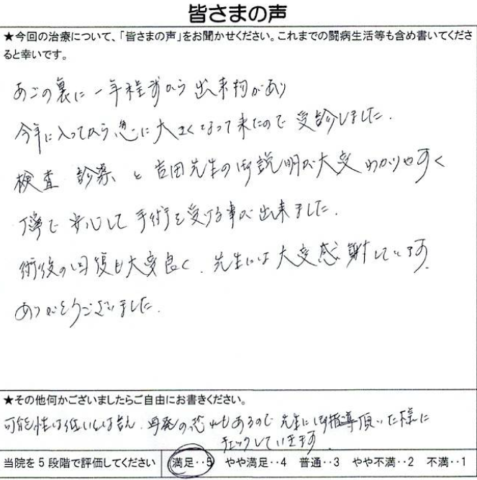 皆さまの声
★今回の治療について、「皆さまの声」をお聞かせください。これまでの闘病生活等も含め書いてくださ
ると幸いです。
あごの裏に一年程前から出来物があり
今年に入ってから急に大きくなって来たので受診しました.
検査 診察 と吉田先生の御説明が大変わかりやすく
丁寧で安心して手術を受ける事が出来ました.
術後の回復も大変良く、先生には大変感謝しています.
ありがとうございました.
★その他何かございましたらご自由にお書きください。
可能性は低いしばせん、再発の恐れもあるので先生に御指導頂いた様に
チェックしていきます
当院を5段階で評価してください 満足‥5 やや満足‥4 普通‥3 やや不満‥2 不満‥1